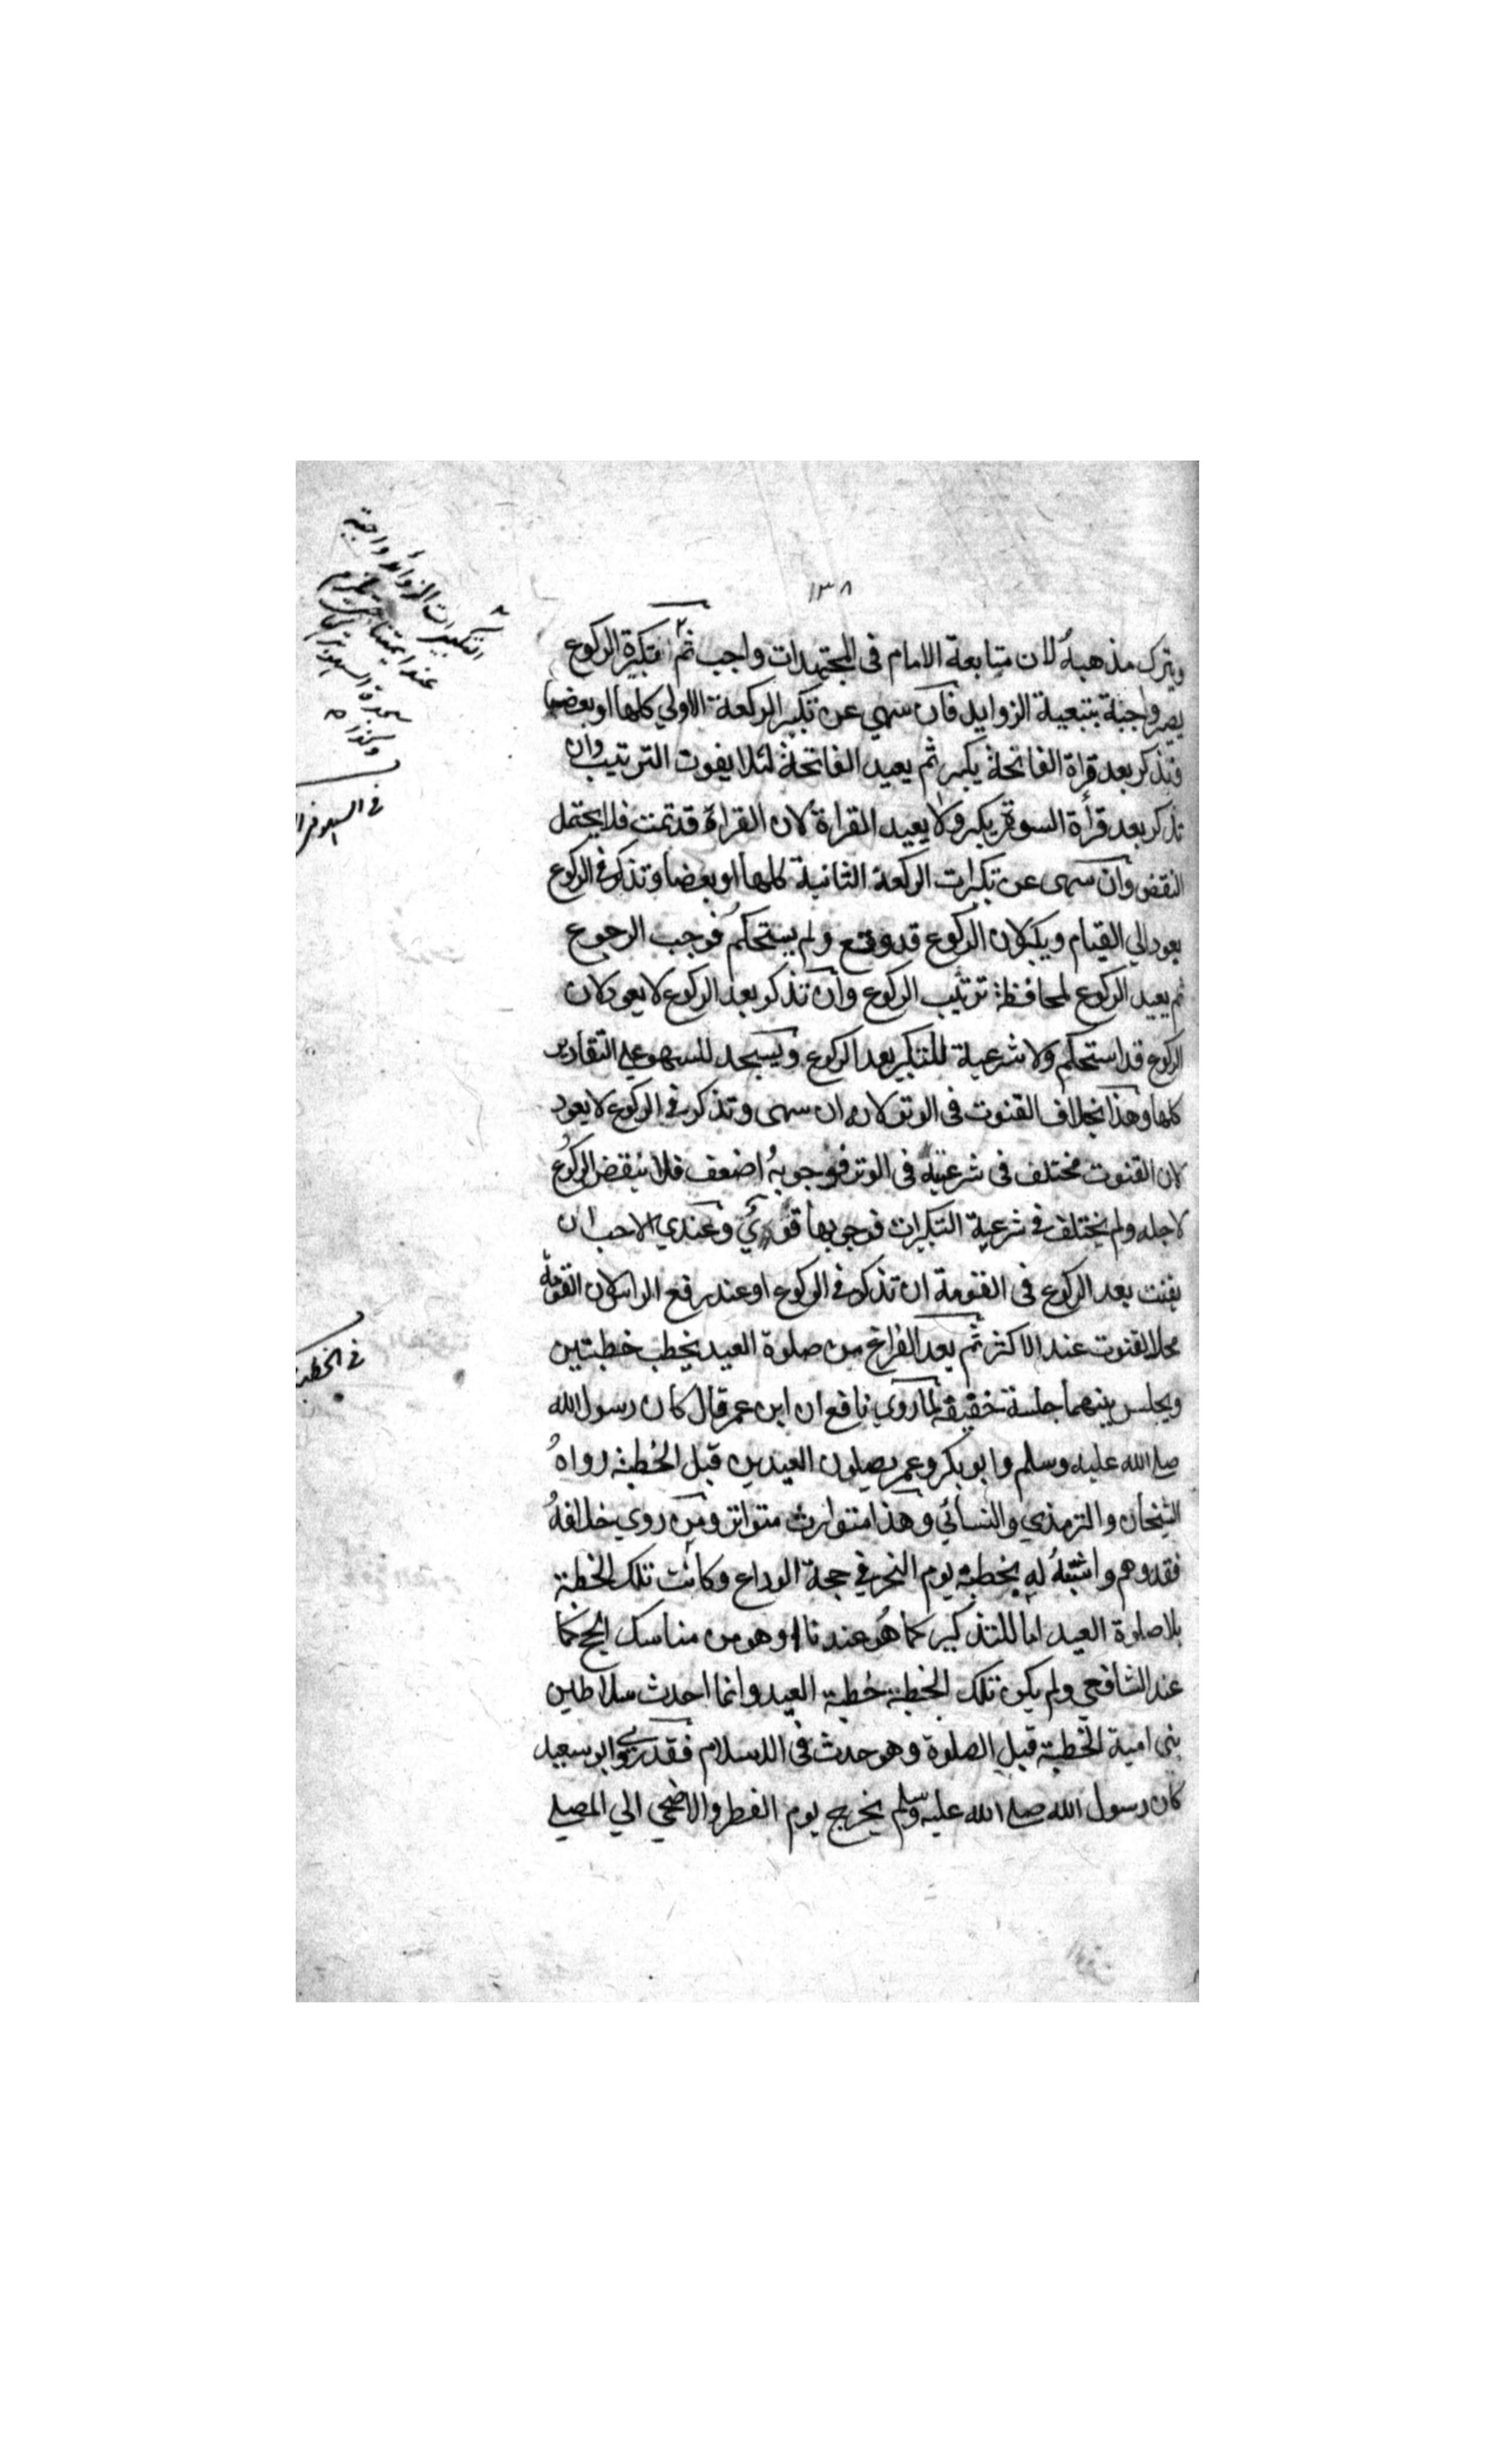 ١٣٨
ويترك مذهبهُ لان متابعة الامام في المجتهدات واجب ثم تكبيرة الركوع
يصير واجبة بتبعية الزوايد فان سهي عن تكبير الركعة الاولي كلها او بعضها
فتذكر بعد قراة الفاتحة يكبر ثم يعيد الفاتحة لئلا يفوت الترتيب وان
تذكر بعد قرأة السورة يكبر ولا يعيد القراة لان القراة قد تمت فلا يحتمل
النقض وان سهى عن تكبرات الركعة الثانية كلها او بعضا وتذكر في الركوع
يعود الي القيام ويكبر لان الركوع قد وقع ولم يستحكم فوجب الرجوع
ثم يعيد الركوع لمحافظة ترتيب الركوع وان تذكر بعد الركوع لا يعود لان
الركوع قد استحكم ولا شرعية للتكبير بعد الركوع ويسجد للسهو علي التقادير
كلها وهذا بخلاف القنوت في الوتر لانه ان سهى وتذكر في الركوع لا يعود
لان القنوت مختلف في شرعيته في الوتر فوجوبهُ اضعف فلا ينقض الركوع
لاجله ولم يختلف في شرعية التكبيرات فوجوبها قوي وعندي الاحب ان
يقنت بعد الركوع في القومة ان تذكر في الركوع او عند رفع الراس لان القومة
محل القنوت عند الاكثر ثم بعد الفراغ من صلوة العيد يخطب خطبتين
ويجلس بينهما جلسة خفيفة لما روي نافع ان ابن عمر قال كان رسول الله
صلي الله عليه وسلم وابو بكر وعمر يصلون العيدين قبل الخطبة رواهُ
الشيخان والترمذي والنسائي وهذا متوارث متواتر ومن روي خلافهُ
فقد وهم واشتبهُ له بخطبة يوم النحر في حجة الوداع وكانت تلك الخطبة
بلا صلوة العيد اما للتذكير كما هو عندنا او هو من مناسك الحج كما
عند الشافعي ولم يكن تلك الخطبة خطبة العيد وانما احدث سلاطين
بني امية الخطبة قبل الصلوة وهو حدث في الاسلام فقد روي ابو سعيد
كان رسول الله صلي الله عليه وسلم يخرج يوم الفطر والاضحي الي المصلي
التكبيرات الزوائد واجبة
عند ايمتنا
سجدة السهو
في السهو
في الخطبة